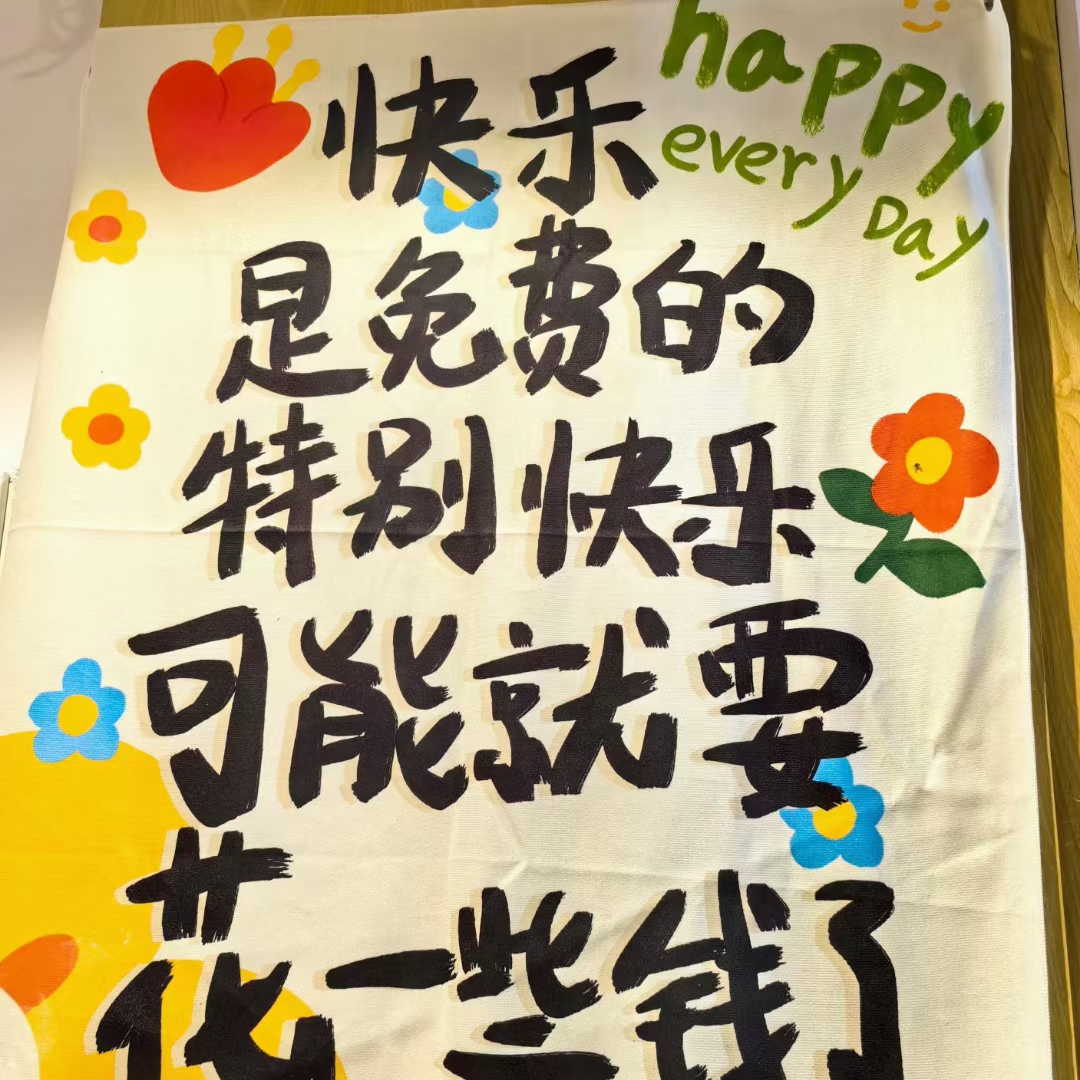 快乐
happy
every Day
是免费的
特别快乐
可能就要
花一些钱了